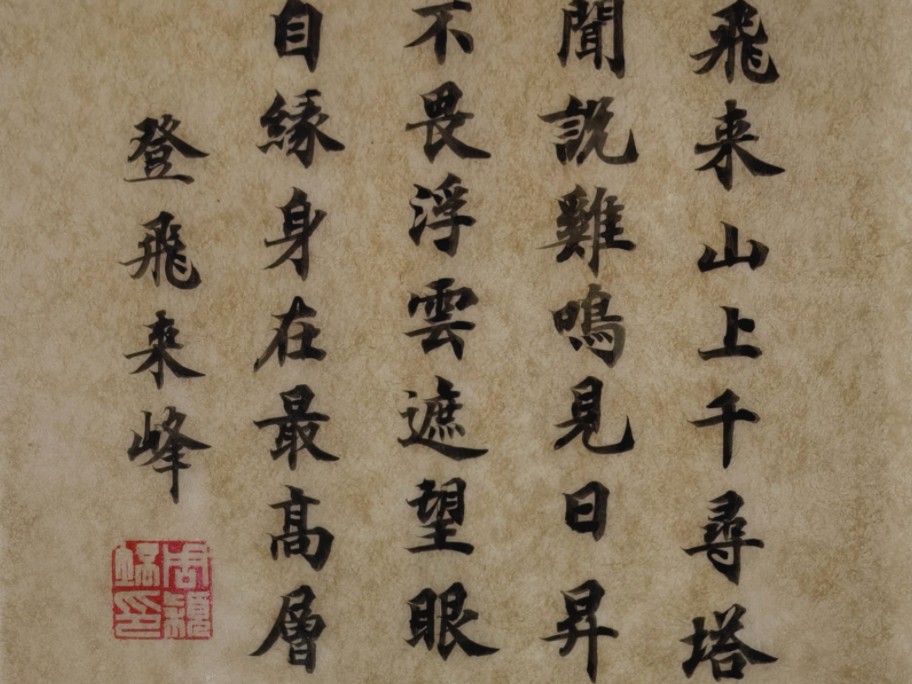 飛来山上千尋塔
聞説雞鳴見日昇
不畏浮雲遮望眼
自縁身在最高層
登飛来峰